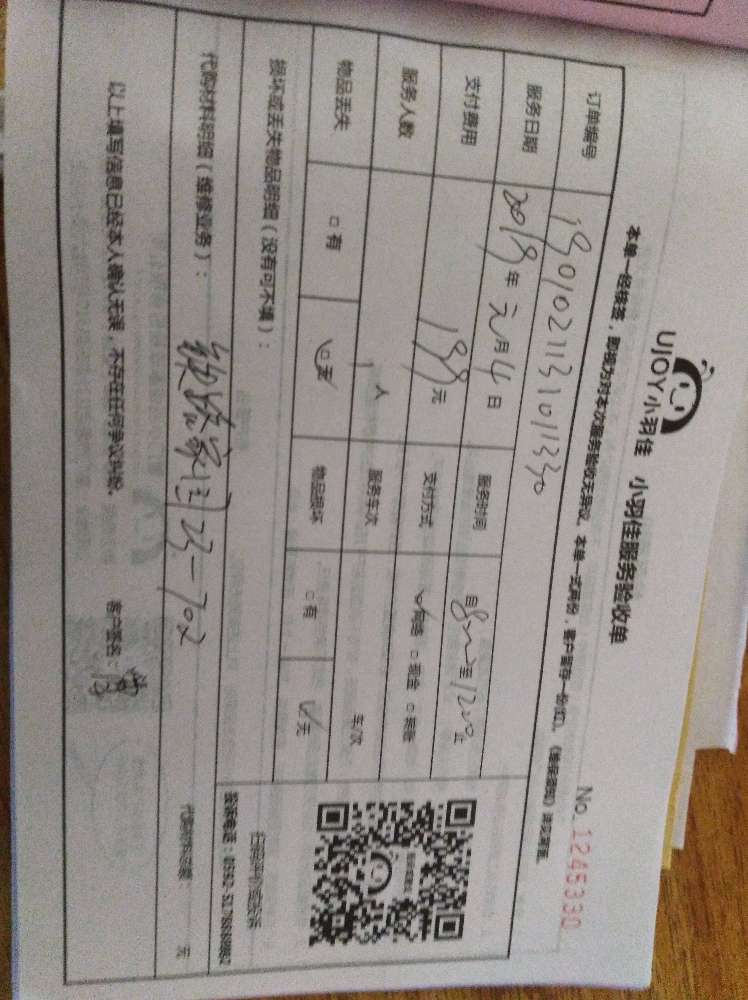 UJOY小羽佳 小羽佳服务验收单
No. 1245330
本单一经核签，即视为对本次服务验收无异议。本单一式两份，客户留存一份(红)。
订单编号 190102113101330
服务日期 2019年元月4日 服务时间 自8:00至12:00止
支付费用 199元 支付方式 网络 □现金 □转账
服务人数 1人 服务车次 车/次
物品丢失 □有 □无 物品损坏 □有 □无
损坏或丢失物品明细（没有可不填）：
扫码评价或投诉
投诉电话：0592-
代购材料明细（维修业务）：
23-702
代购材料总额： 元
以上填写信息已经本人确认无误，不存在任何争议纠纷。 客户签名：